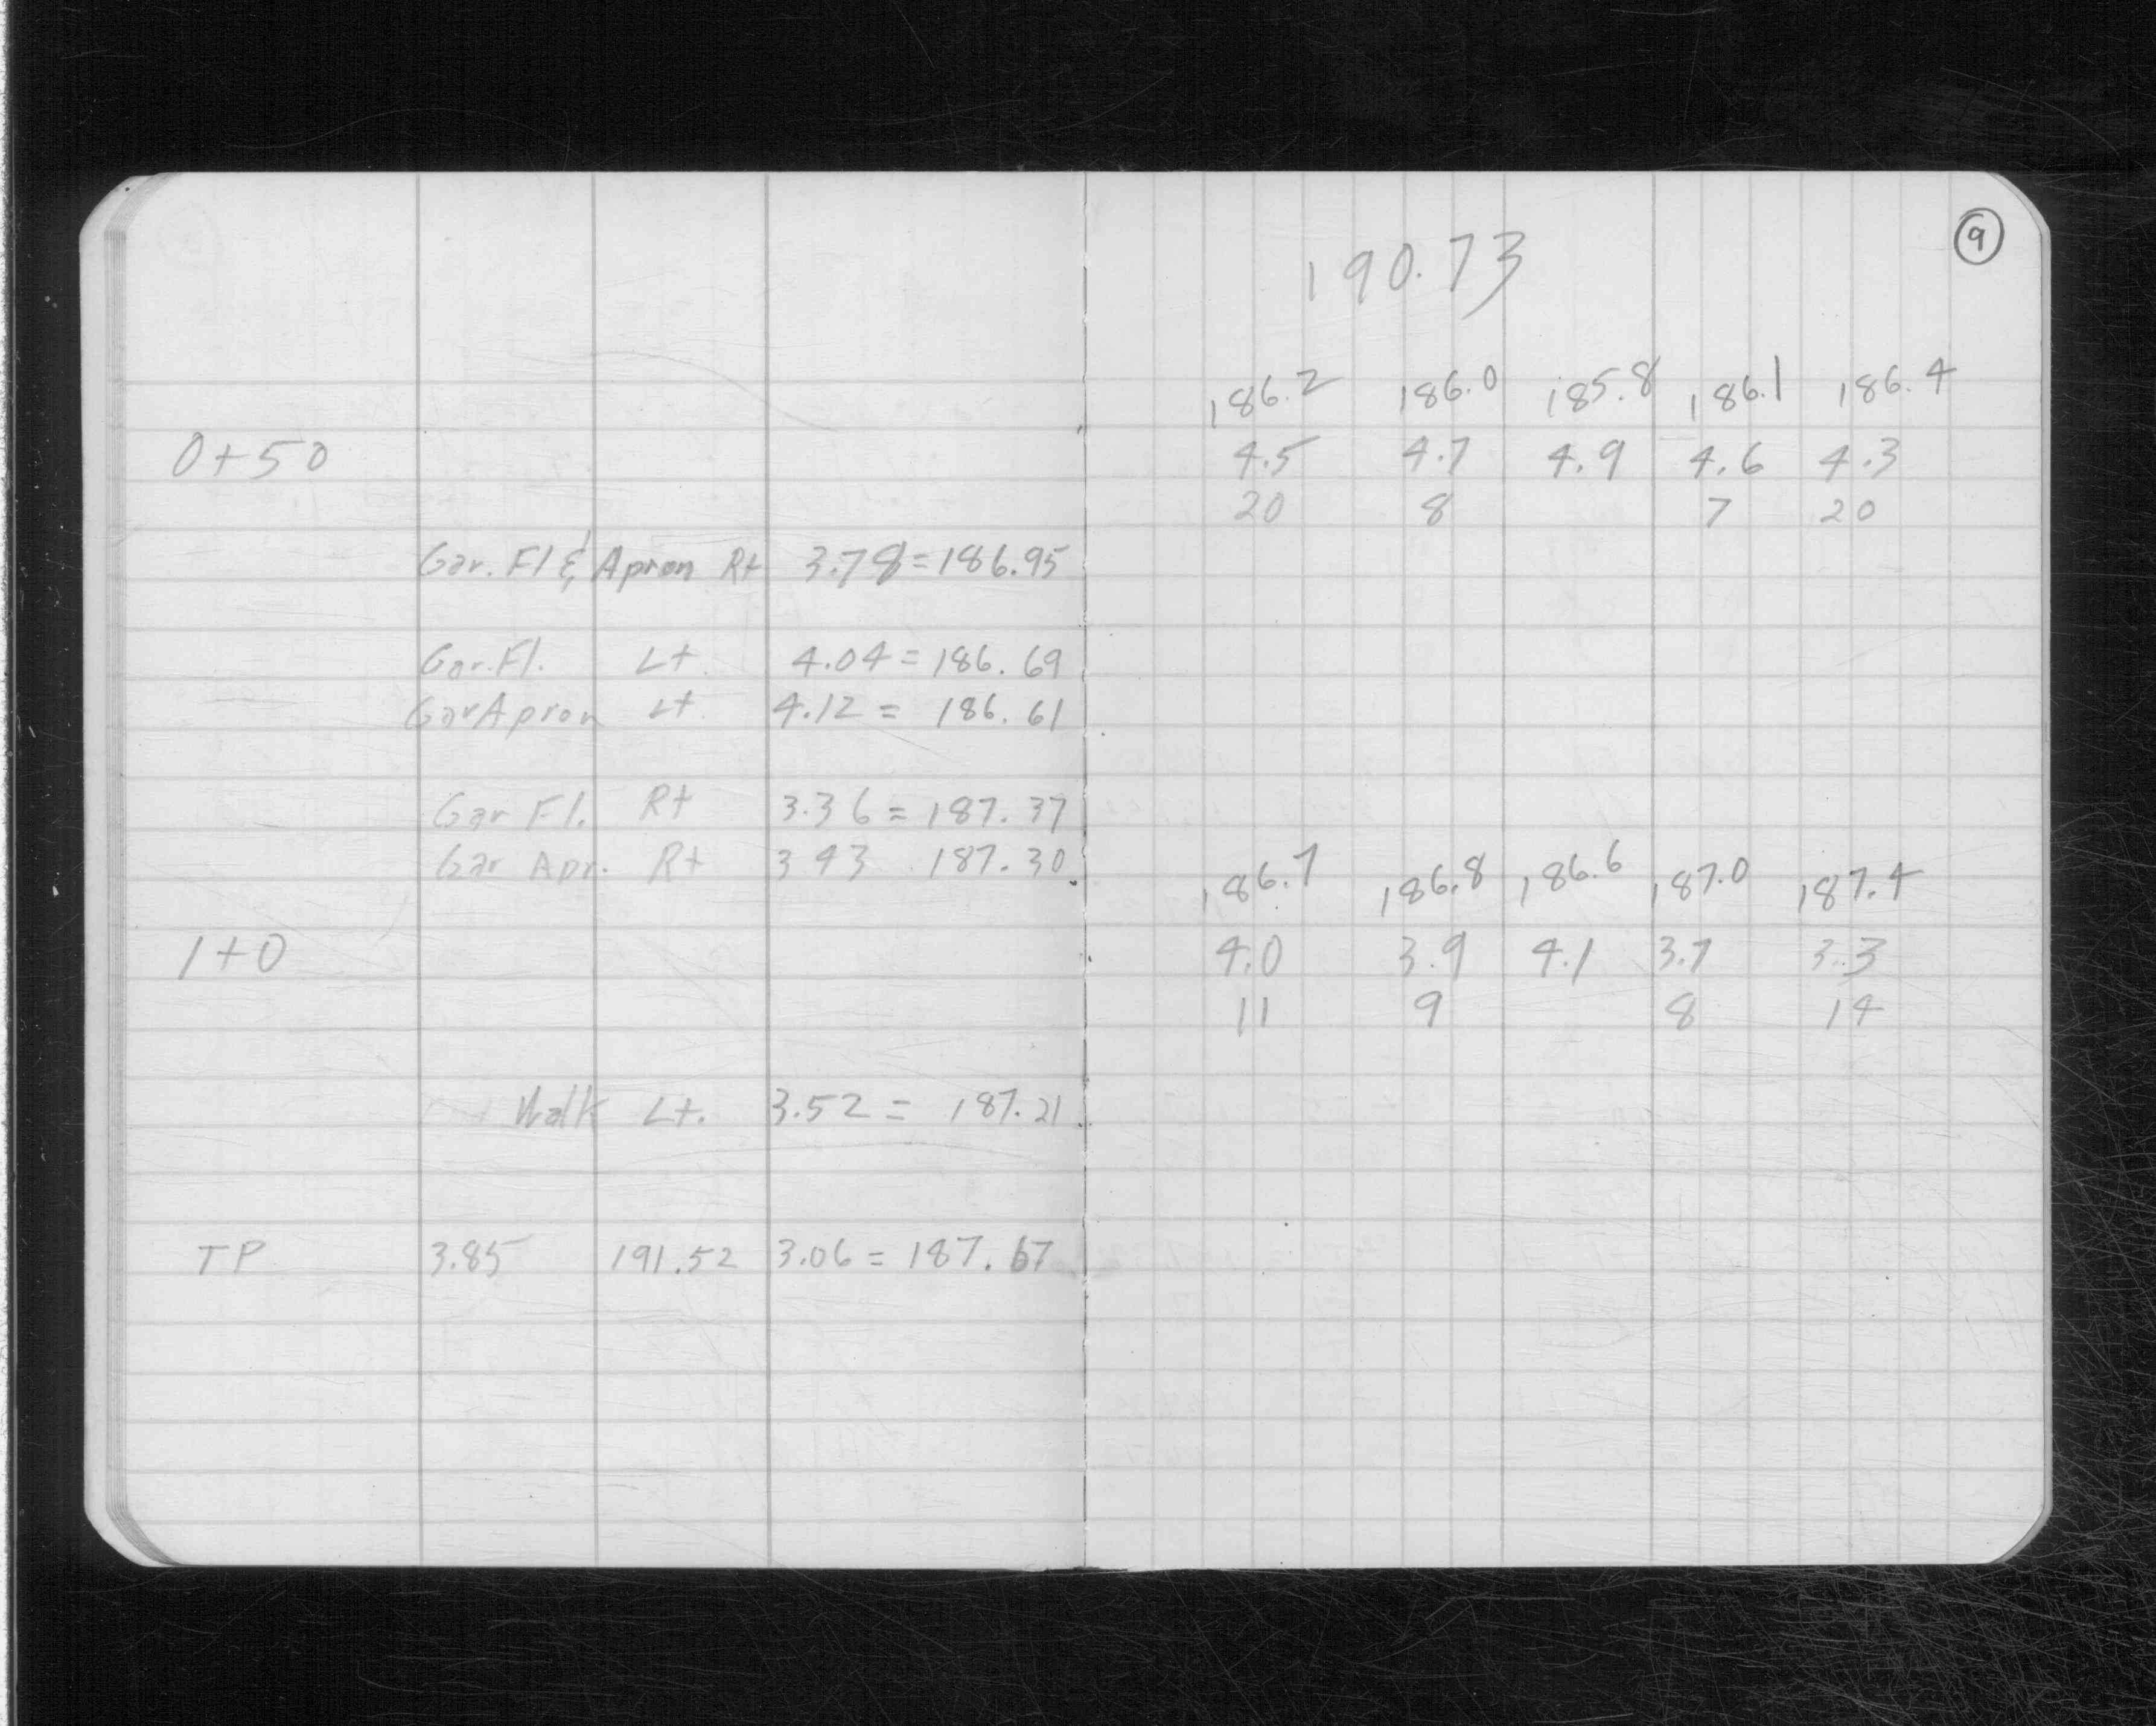 9
190.73
186.2 186.0 185.8 186.1 186.4
0+50 4.5 4.7 4.9 4.6 4.3
20 8 7 20
Gar. Fl & Apron Rt 3.78 = 186.95
Gar. Fl. Lt. 4.04 = 186.69
Gar Apron Lt. 4.12 = 186.61
Gar Fl. Rt 3.36 = 187.37
Gar Apr. Rt 3 43 187.30
186.7 186.8 186.6 187.0 187.4
1+0 4.0 3.9 4.1 3.7 3.3
11 9 8 14
Walk Lt. 3.52 = 187.21
TP 3.85 191.52 3.06 = 187.67